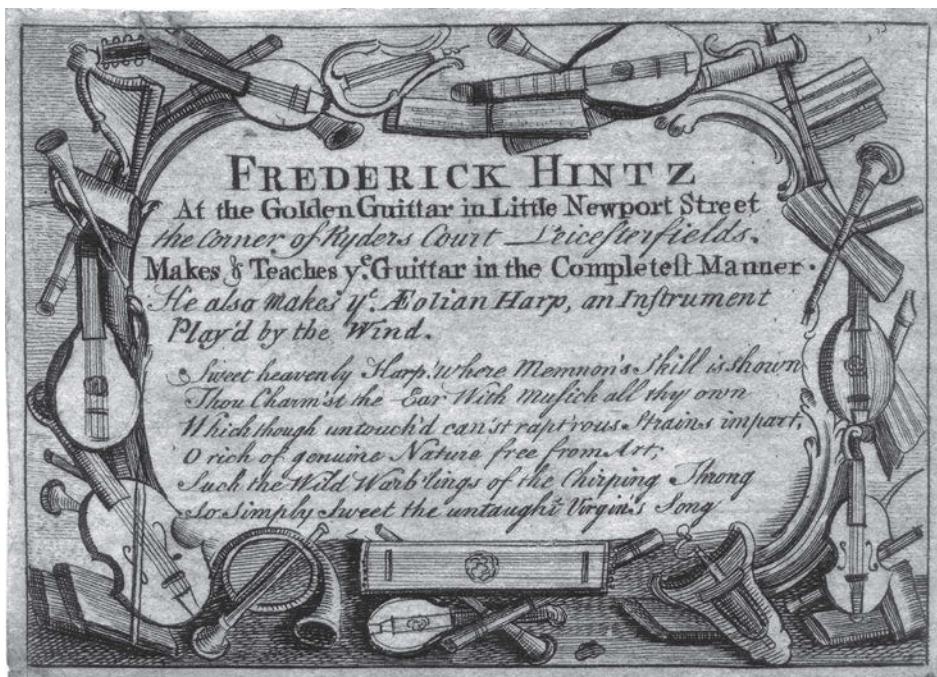 FREDERICK HINTZ
At the Golden Guittar in Little Newport Street
the Corner of Ryders Court Leicesterfields.
Makes & Teaches yᵉ. Guittar in the Completest Manner.
He also makes yᵉ. Æolian Harp, an Instrument
Play'd by the Wind.
Sweet heavenly Harp! where Memnon's Skill is shown
Thou Charm'st the Ear With Musick all thy own
Which though untouch'd can'st rapt'rous Strains impart,
O rich of genuine Nature free from Art,
Such the Wild Warb'lings of the Chirping Throng
So Simply Sweet the untaught Virgin's Song